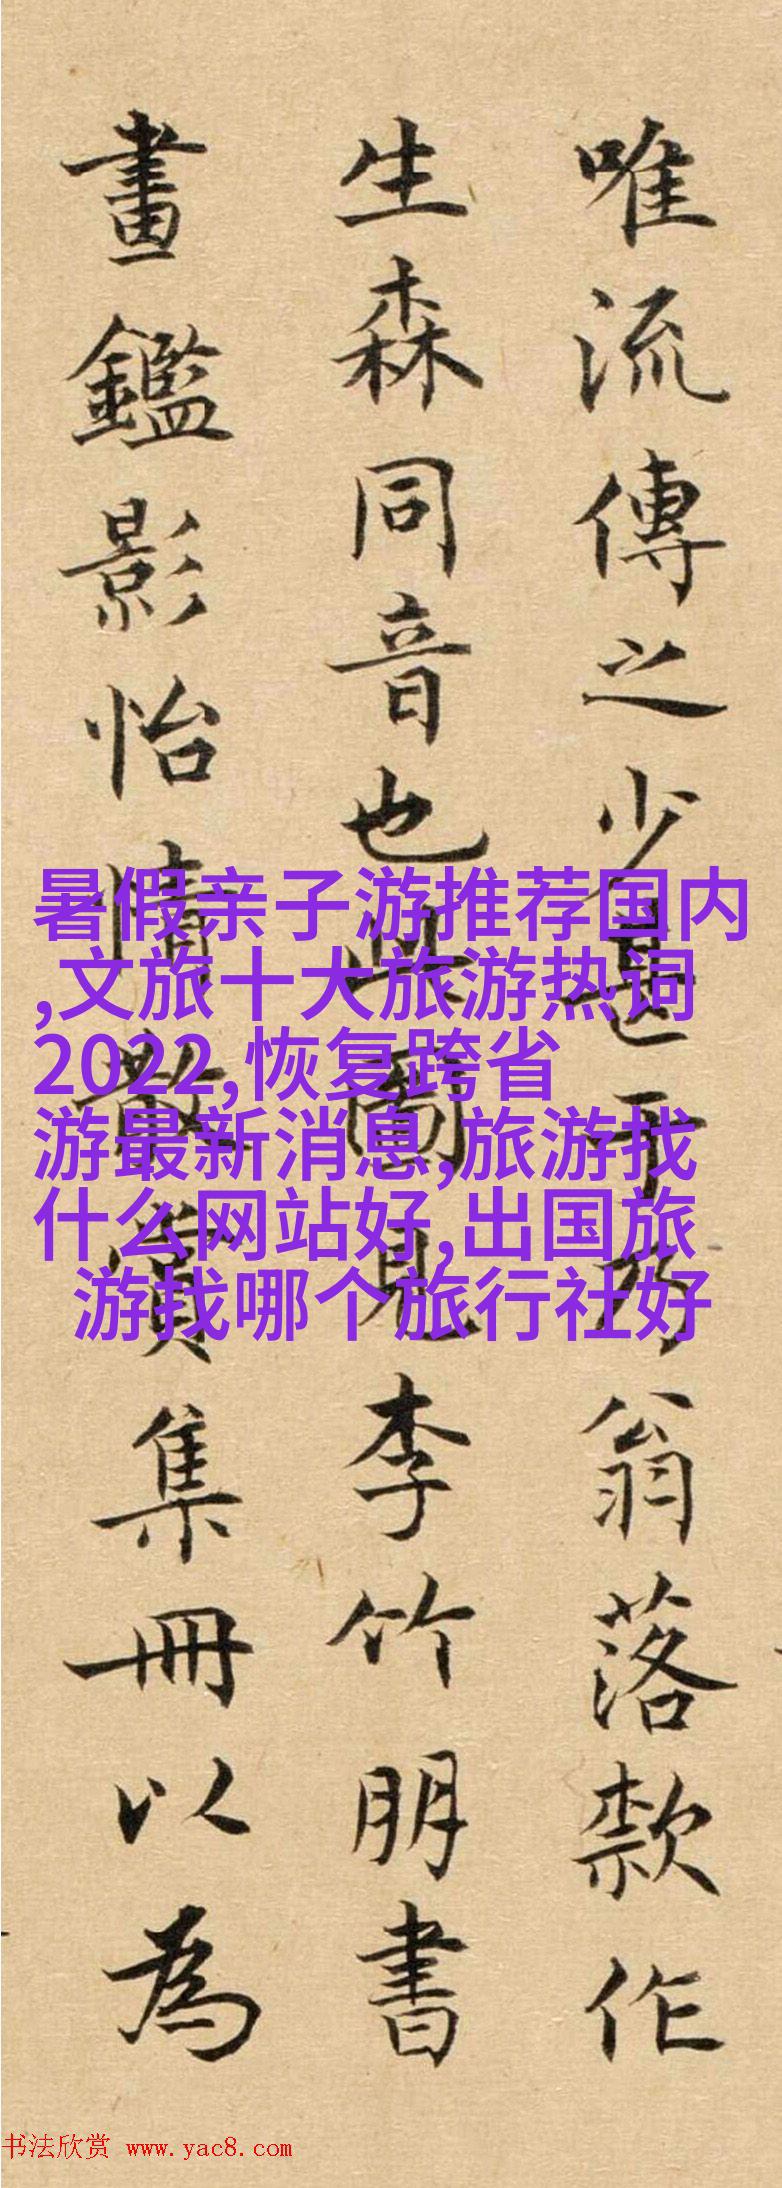 唯流傳之少甚于乃翁落款作
生森同音也此圖見李竹朋書
畫鑑影怡情賞集冊以為
暑假亲子游推荐国内
,文旅十大旅游热词
2022,恢复跨省
游最新消息,旅游找
什么网站好,出国旅
游找哪个旅行社好
书法欣赏 www.yac8.com